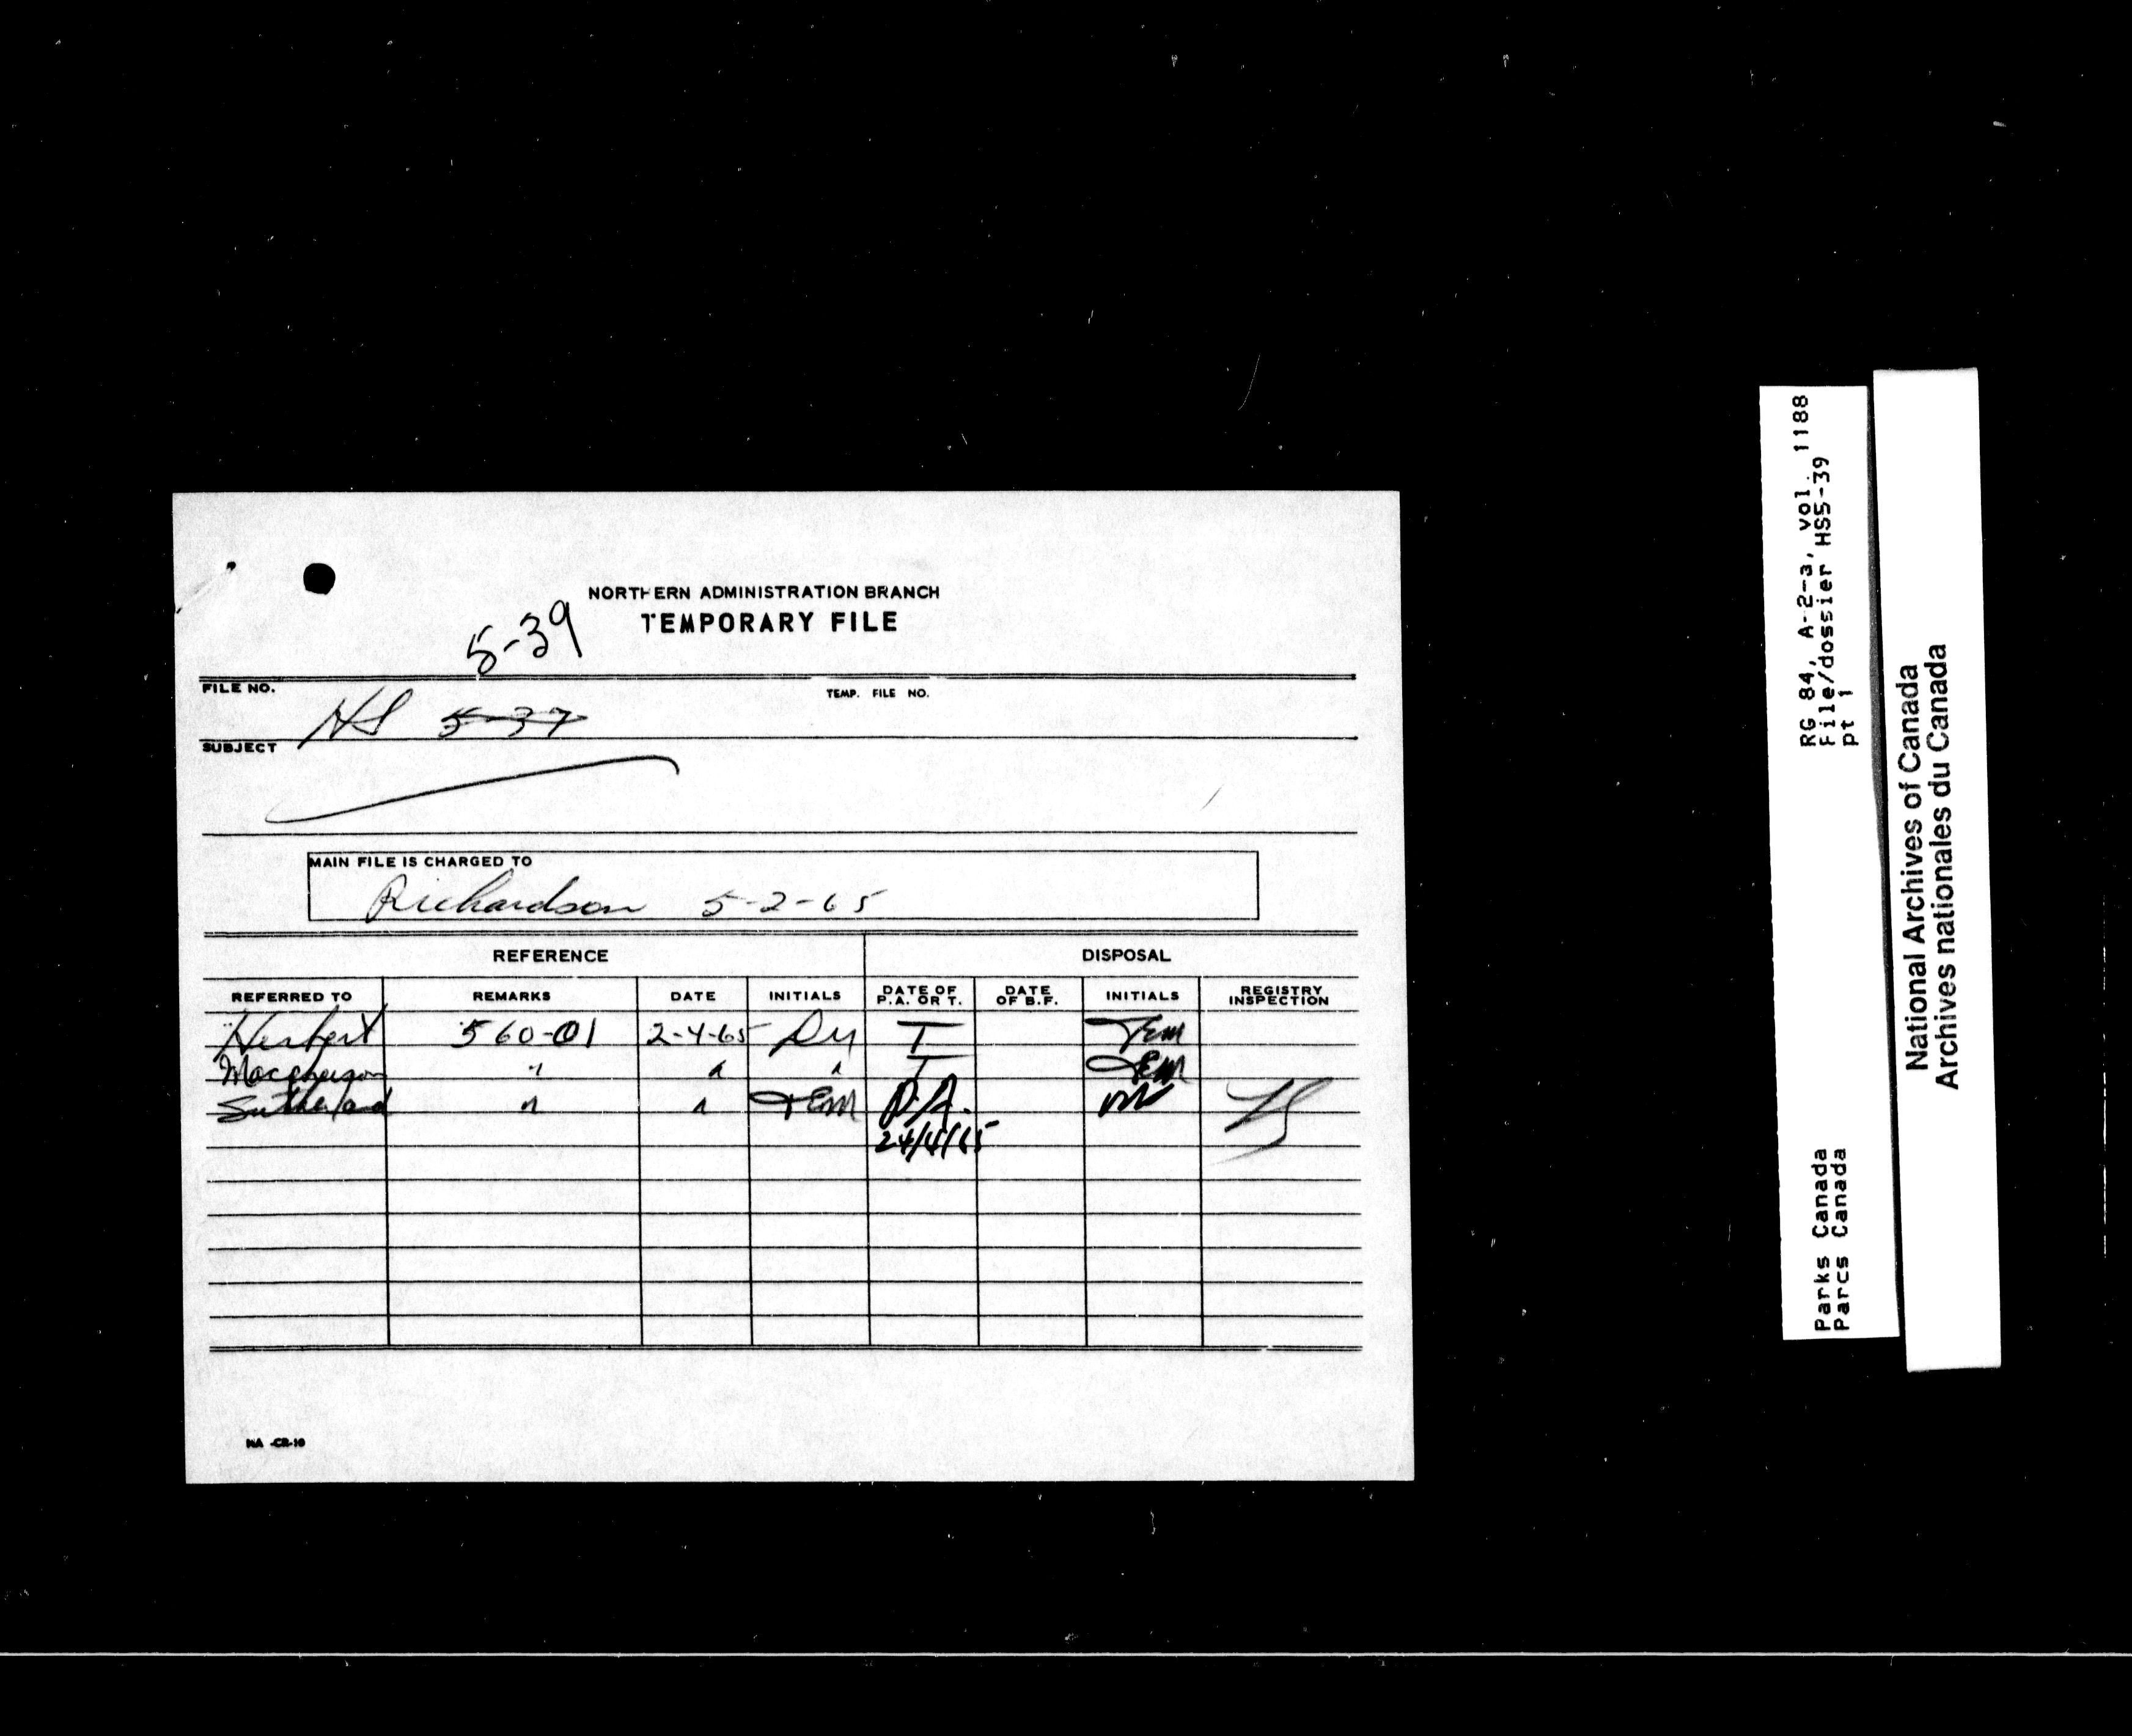 NORTHERN ADMINISTRATION BRANCH
TEMPORARY FILE
5-39
FILE NO.
TEMP. FILE NO.
HS 5-37
SUBJECT
MAIN FILE IS CHARGED TO
Richardson 5-2-65
REFERENCE DISPOSAL
REFERRED TO REMARKS DATE INITIALS DATE OF P.A. OR T. DATE OF B.F. INITIALS REGISTRY INSPECTION
Herbert 560-01 2-4-65 T JEM
Macpherson " " " T JEM
Sutherland " " JEM P.A.
24/4/65
NA -CR-10
RG 84, A-2-3, vol. 1188
File/dossier HS5-39
pt 1
Parks Canada
Parcs Canada
National Archives of Canada
Archives nationales du Canada